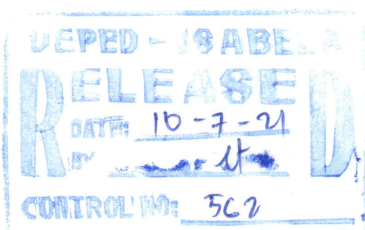 DEPED - ISABELA
RELEASED
DATE: 10-7-21
BY
CONTROL NO: 562